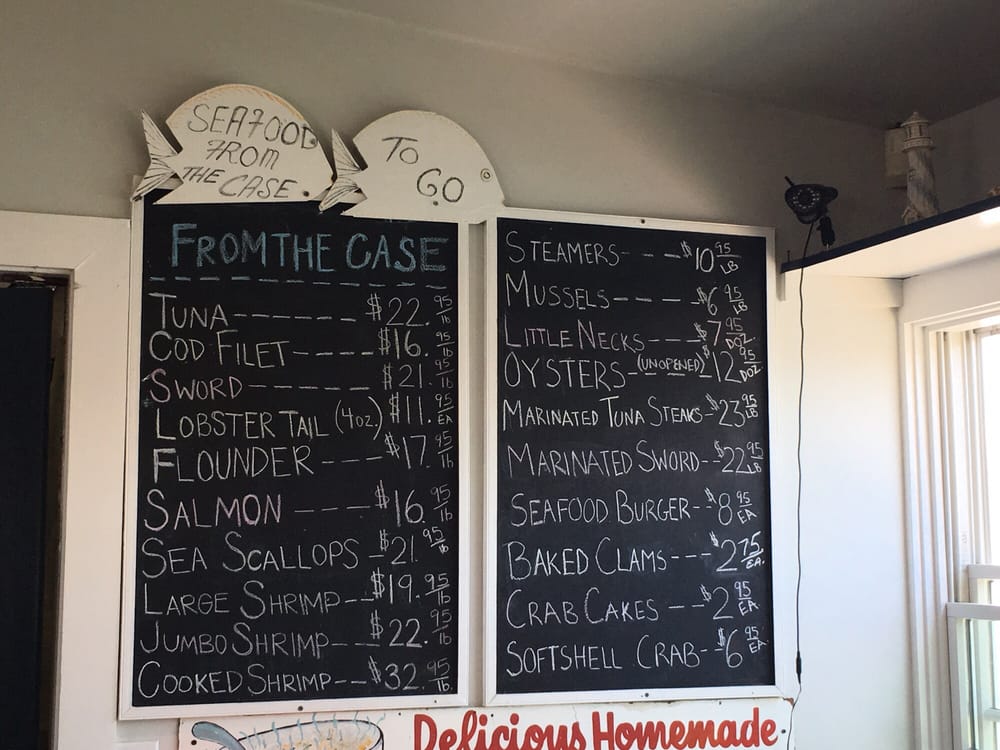 SEAFOOD
FROM
THE CASE
TO
GO
FROM THE CASE
TUNA------ $22.95 lb
COD FILET---- $16.95 lb
SWORD------ $21.95 lb
LOBSTER TAIL (4oz.) $11.95 EA
FLOUNDER---- $17.95 lb
SALMON---- $16.95 lb
SEA SCALLOPS - $21.95 lb
LARGE SHRIMP-- $19.95 lb
JUMBO SHRIMP-- $22.95 lb
COOKED SHRIMP-- $32.95 lb.
STEAMERS---- $10 95 LB
MUSSELS---- $6 95 LB
LITTLE NECKS--- $7 95 DOZ
OYSTERS-(UNOPENED)- $12 95 DOZ
MARINATED TUNA STEAKS- $23 95 LB
MARINATED SWORD-- $22 95 LB
SEAFOOD BURGER-- $8 95 EA
BAKED CLAMS--- $2 75 EA.
CRAB CAKES -- $2 95 EA
SOFTSHELL CRAB-- $6 95 EA
Delicious Homemade